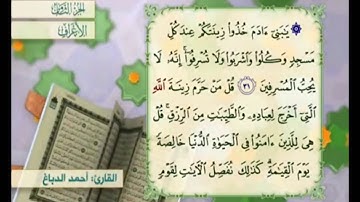 الجزء الثامن
الأعراف
۞ يَـٰبَنِىٓ ءَادَمَ خُذُوا۟ زِينَتَكُمْ عِندَ كُلِّ
مَسْجِدٍ وَكُلُوا۟ وَٱشْرَبُوا۟ وَلَا تُسْرِفُوٓا۟ إِنَّهُۥ لَا
يُحِبُّ ٱلْمُسْرِفِينَ ٣١ قُلْ مَنْ حَرَّمَ زِينَةَ ٱللَّهِ
ٱلَّتِىٓ أَخْرَجَ لِعِبَادِهِۦ وَٱلطَّيِّبَـٰتِ مِنَ ٱلرِّزْقِ قُلْ
هِىَ لِلَّذِينَ ءَامَنُوا۟ فِى ٱلْحَيَوٰةِ ٱلدُّنْيَا خَالِصَةً
يَوْمَ ٱلْقِيَـٰمَةِ كَذَٰلِكَ نُفَصِّلُ ٱلْـَٔايَـٰتِ لِقَوْمٍ
القارئ: أحمد الدباغ